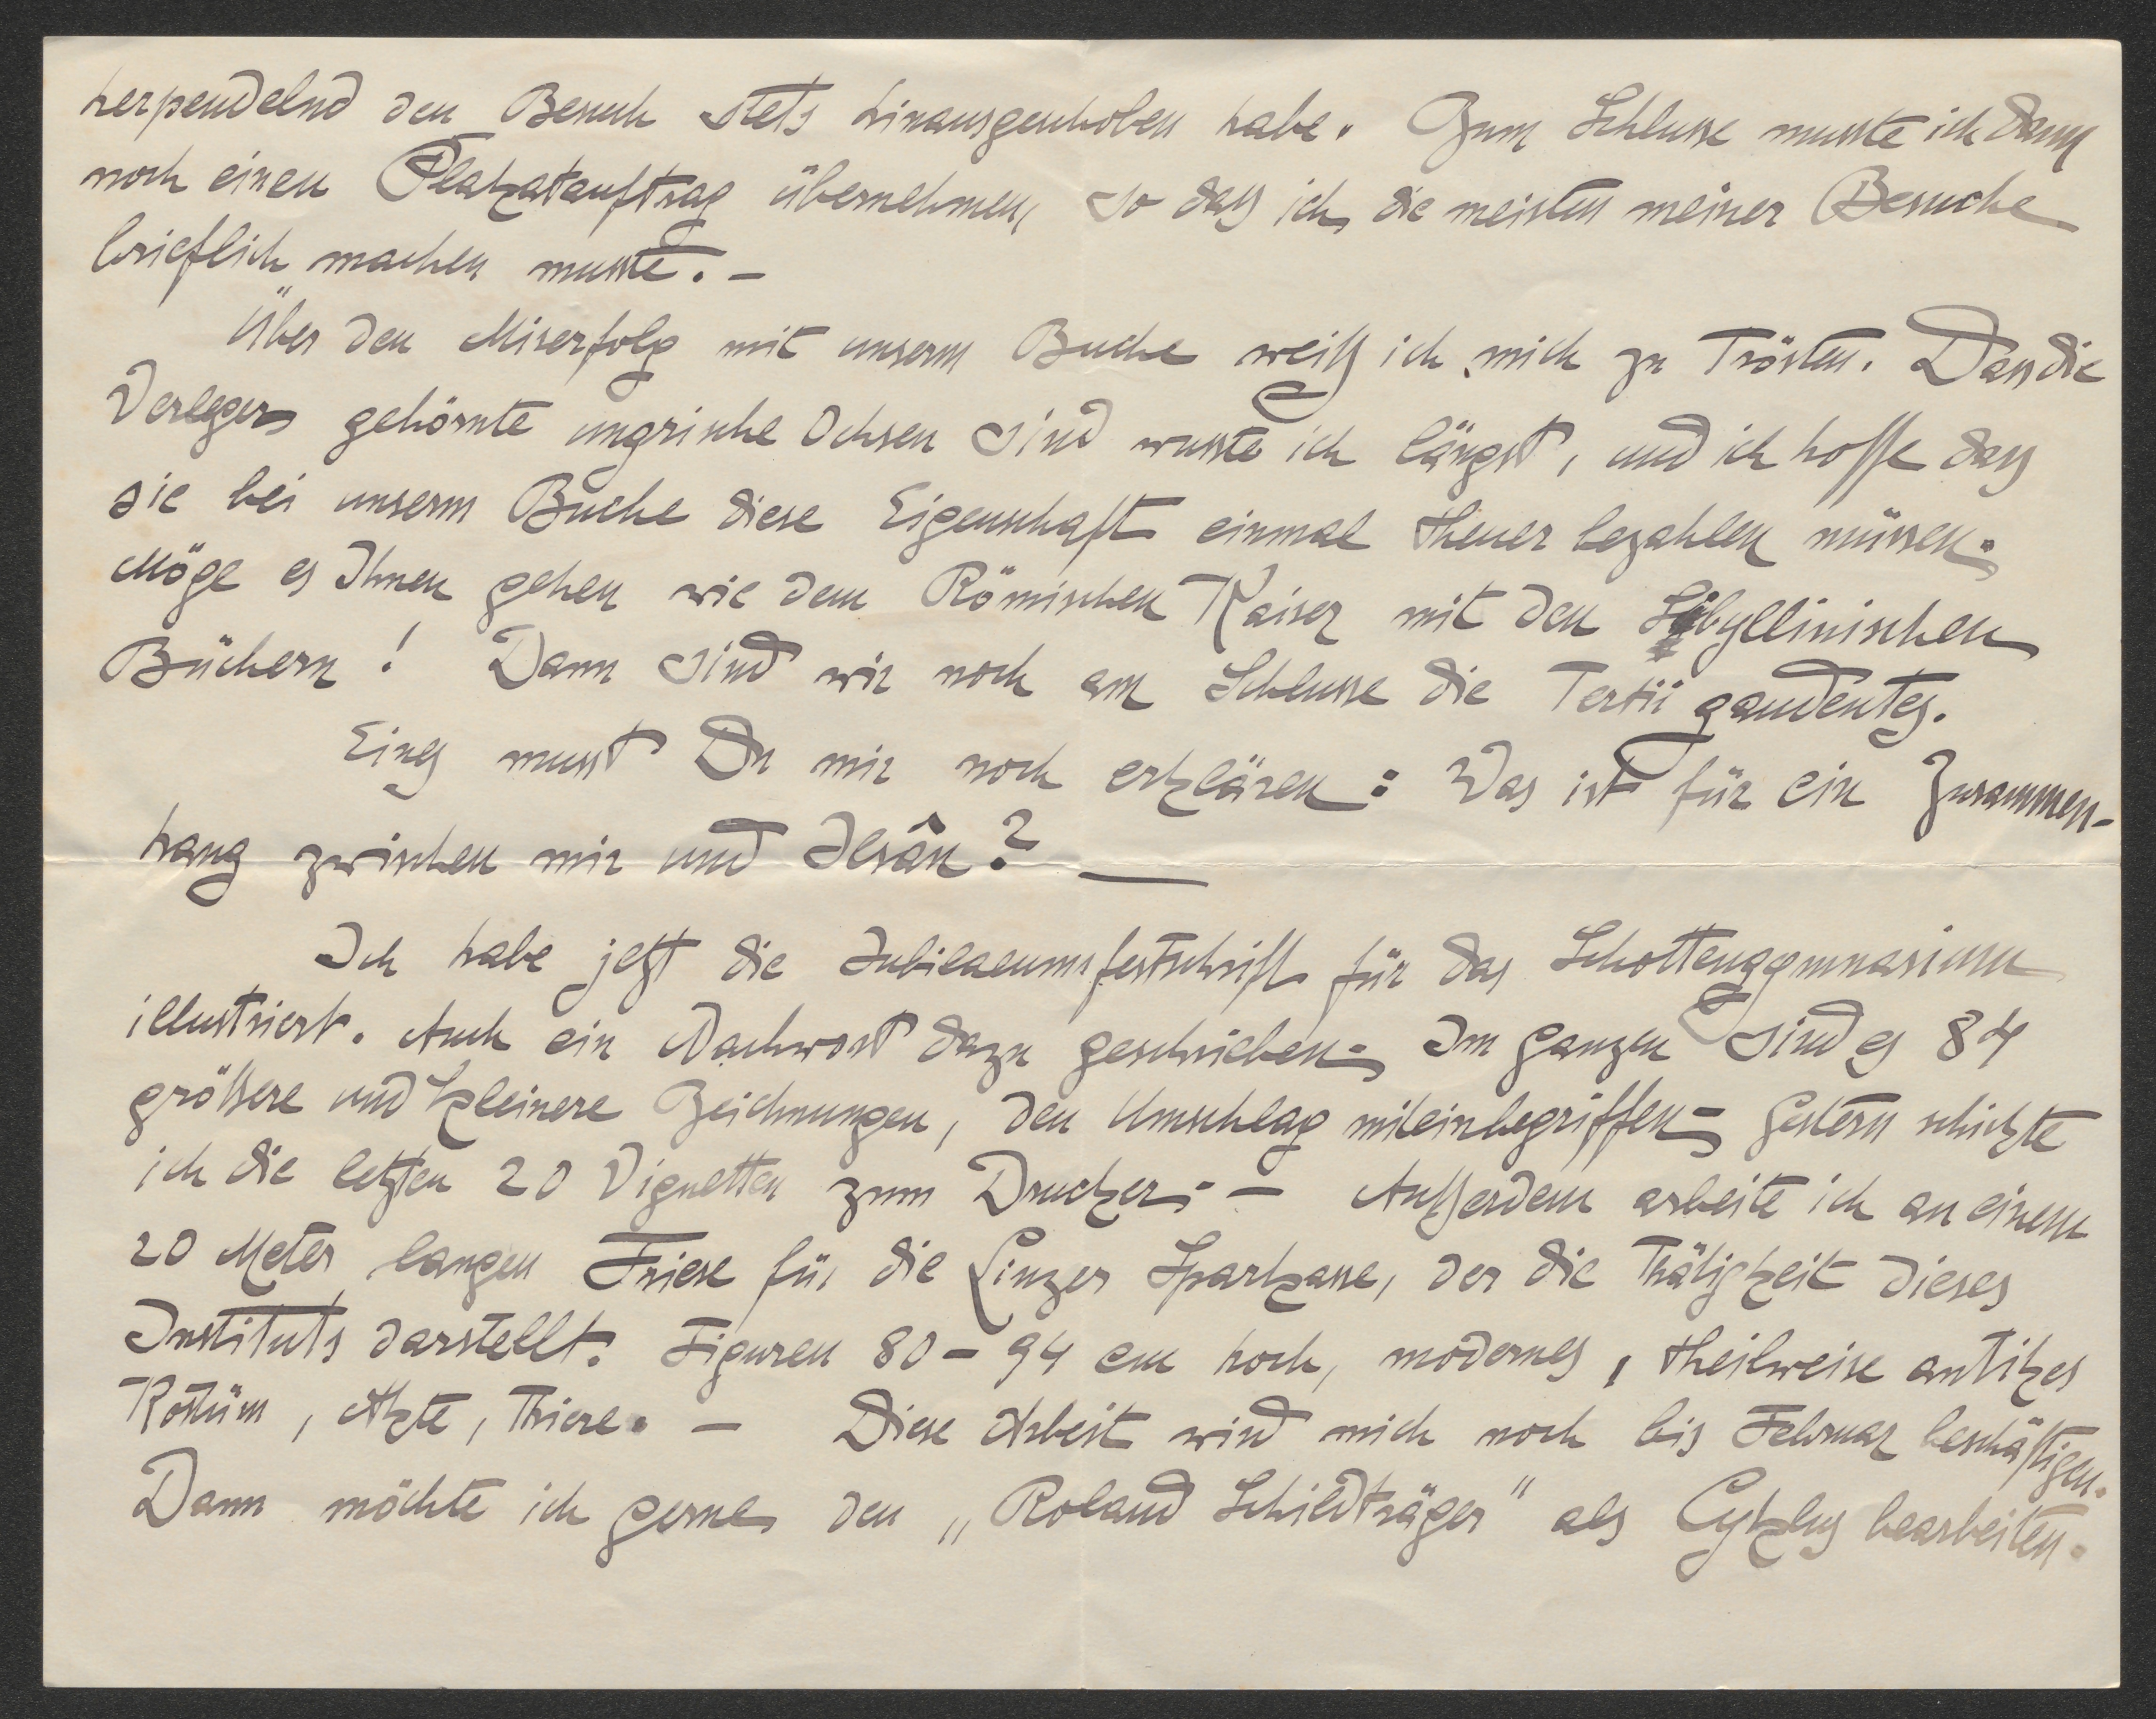 herpendelnd den Besuch stets hinausgeschoben habe. Zum Schlusse musste ich dann
noch einen Plakatauftrag übernehmen, so dass ich die meisten meiner Besuche
brieflich machen musste. –
Über den Miserfolg mit unserm Buche weiß ich mich zu trösten. Dass die
Verleger gehörnte ungrische Ochsen sind wusste ich längst, und ich hoffe dass
sie bei unserm Buche diese Eigenschaft einmal theuer bezahlen müssen.
Möge es Ihnen gehen wie dem Römischen Kaiser mit den Sibyllinischen
Büchern! Dann sind wir noch am Schlusse die Tertii gaudentes.
Eines musst Du mir noch erklären: Was ist für ein Zusammen-
hang zwischen mir und Ilsân? —
Ich habe jetzt die Jubilaeumsfestschrift für das Schottengymnasium
illustriert. Auch ein Nachwort dazu geschrieben. Im ganzen sind es 84
größere und kleinere Zeichnungen, den Umschlag miteinbegriffen. Gestern schickte
ich die letzten 20 Vignetten zum Drucker. – Außerdem arbeite ich an einem
20 Meter langen Friese für die Linzer Sparkasse, der die Thätigkeit dieses
Instituts darstellt. Figuren 80 – 94 cm hoch, modernes, theilweise antikes
Kostüm, Akte, Thiere. – Diese Arbeit wird mich noch bis Februar beschäftigen.
Dann möchte ich gerne den „Roland Schildträger" als Cyklus bearbeiten.